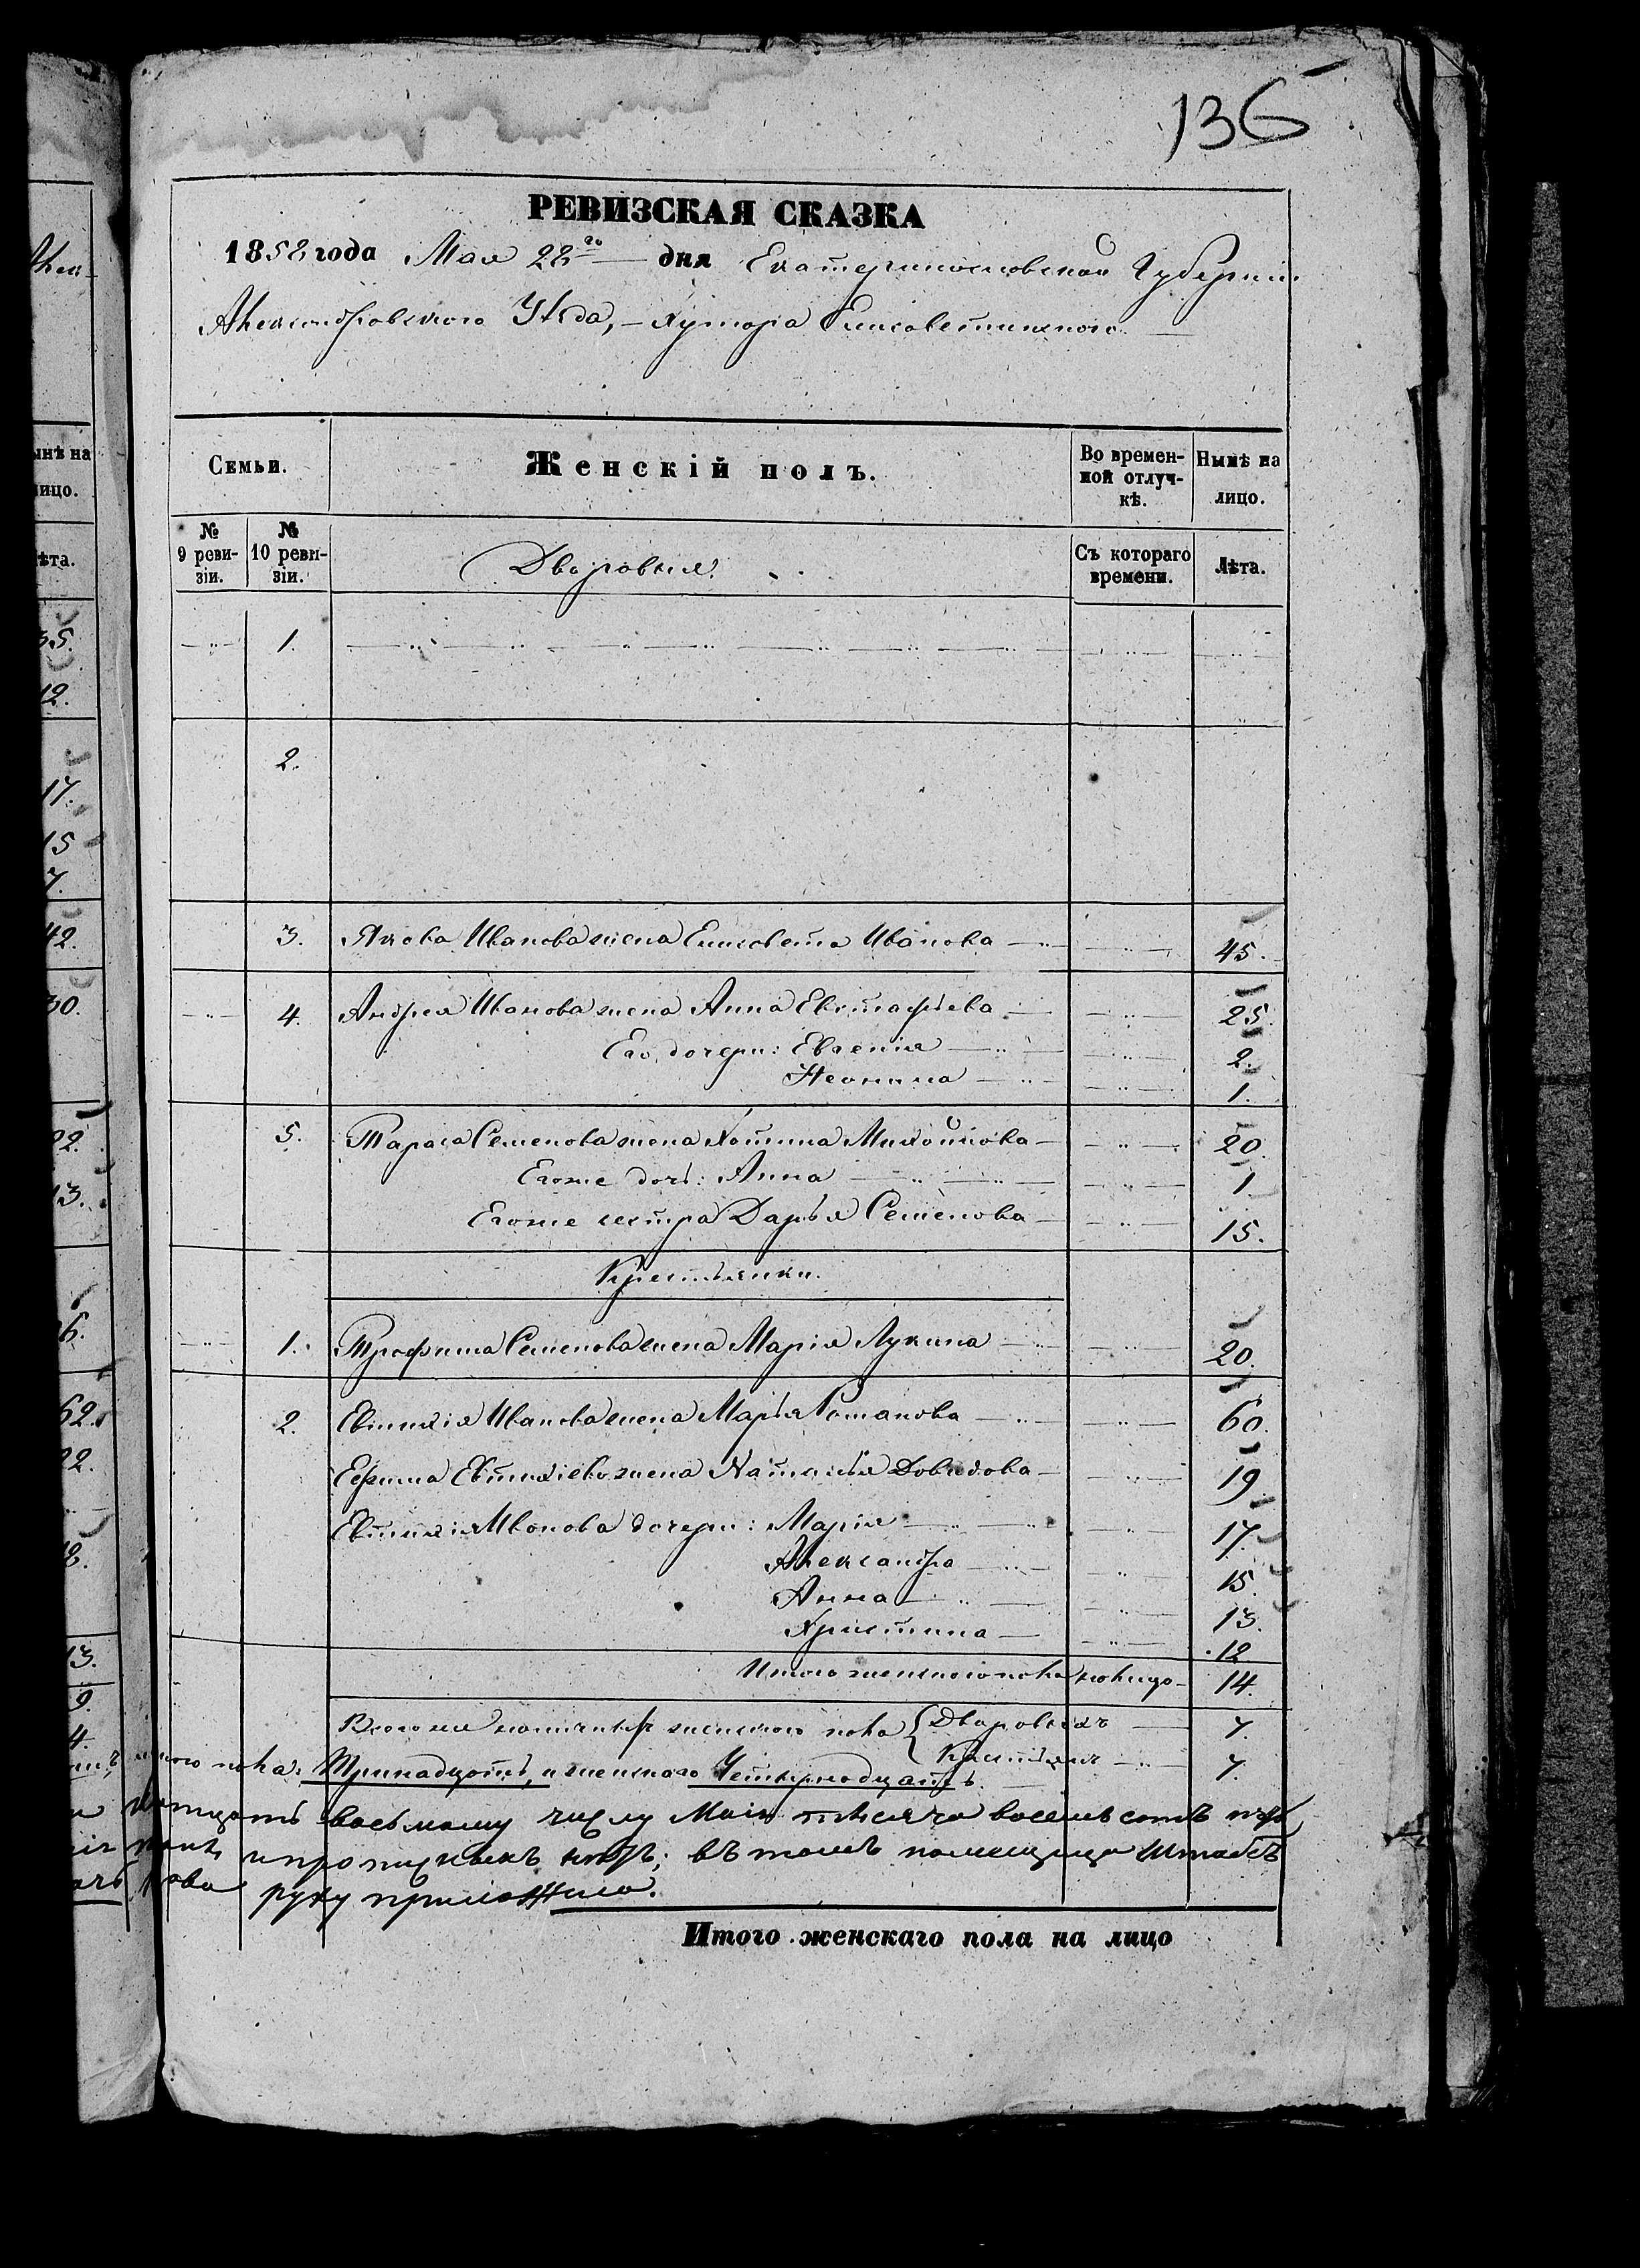 136
РЕВИЗСКАЯ СКАЗКА
1858 года Мая 28го дня Екатеринославской Губернии
Александровскаго Уѣзда, – хутора Елисаветинскаго
Семьи.
Женскій полъ.
Во времен-
ной отлуч-
кѣ.
Нынѣ на
лицо.
№
9 реви-
зіи.
№
10 реви-
зіи.
Дворовыя.
Съ котораго
времени.
Лѣта.
1.
2.
3. Якова Иванова жена Елисавета Иванова 45.
4. Андрея Иванова жена Анна Евстафьева 25.
Его дочери: Евгенія 2.
Неонила 1.
5. Тараса Семенова жена Хотина Михайлова 20.
Его же дочь: Анна 1
Его же сестра Дарья Семенова 15.
Крестьянки.
1. Трофима Семенова жена Марія Лукина 20.
2. Евтихія Иванова жена Марья Романова 60.
Ефима Евтихіева жена Наталья Давидова 19
Евтихія Иванова дочери: Марія 17.
Александра 15.
Анна 13.
Христина 12
Итого женскаго пола на лицо 14.
Всего же женскаго пола Дворовыхъ 7.
Крестьянъ 7.
пола: Тринадцать, и женскаго Четырнадцать.
восьмому числу Маія мѣсяца восемь сотъ
и прописныхъ нѣтъ; въ томъ помещица Штабсъ
руку приложила.
Итого женскаго пола на лицо